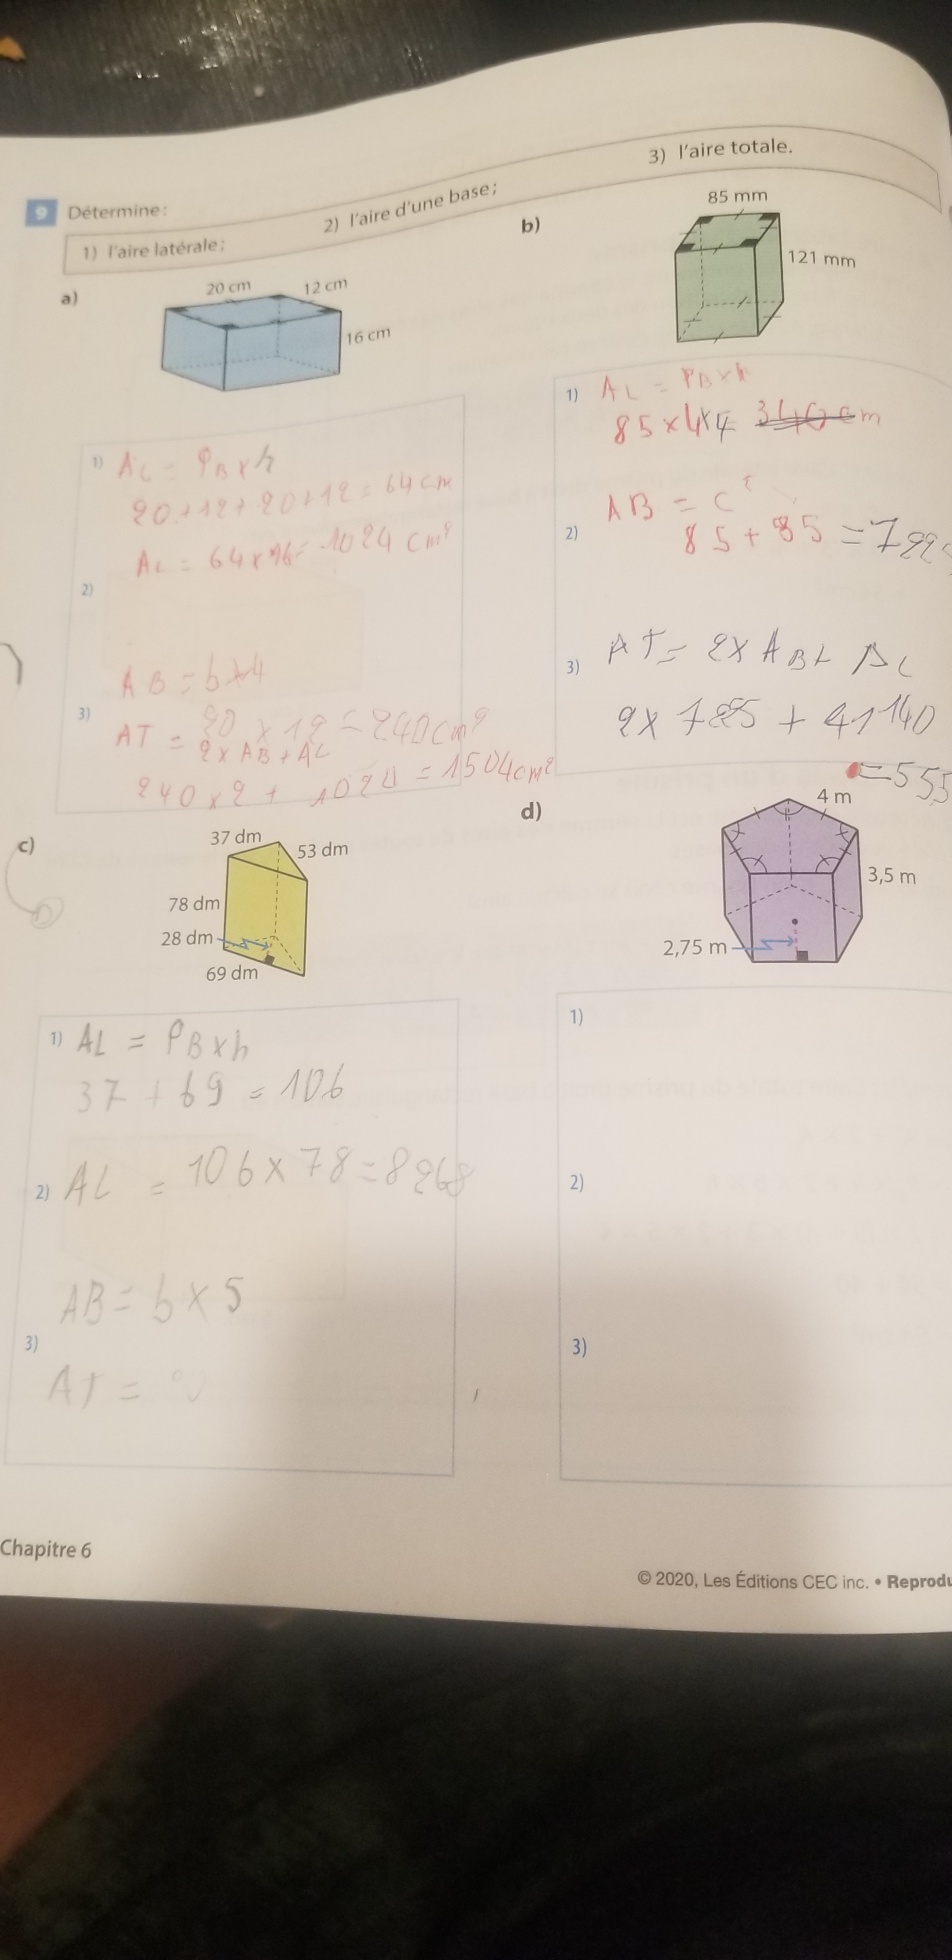 9 Détermine :
1) l'aire latérale ;
2) l'aire d'une base ;
3) l'aire totale.
a)
20 cm
12 cm
16 cm
1) AL = PB x h
20 + 12 + 20 + 12 = 64 cm
AL = 64 x 16 = 1024 cm²
2)
AB = b x 4
20 x 12 = 240 cm²
3)
AT = 2 x AB + AL
240 x 2 + 1020 = 1504 cm²
b)
85 mm
121 mm
1) AL = PB x h
85 x 4 x 4 = 340 cm
2) AB = C²
85 + 85 =
3) AT = 2 x AB + AL
2 x 7225 + 41140
= 555
c)
37 dm
53 dm
78 dm
28 dm
69 dm
1) AL = PB x h
37 + 69 = 106
2) AL = 106 x 78 = 8268
AB = b x 5
3)
AT =
d)
4 m
3,5 m
2,75 m
1)
2)
3)
Chapitre 6
© 2020, Les Éditions CEC inc. • Reprodu